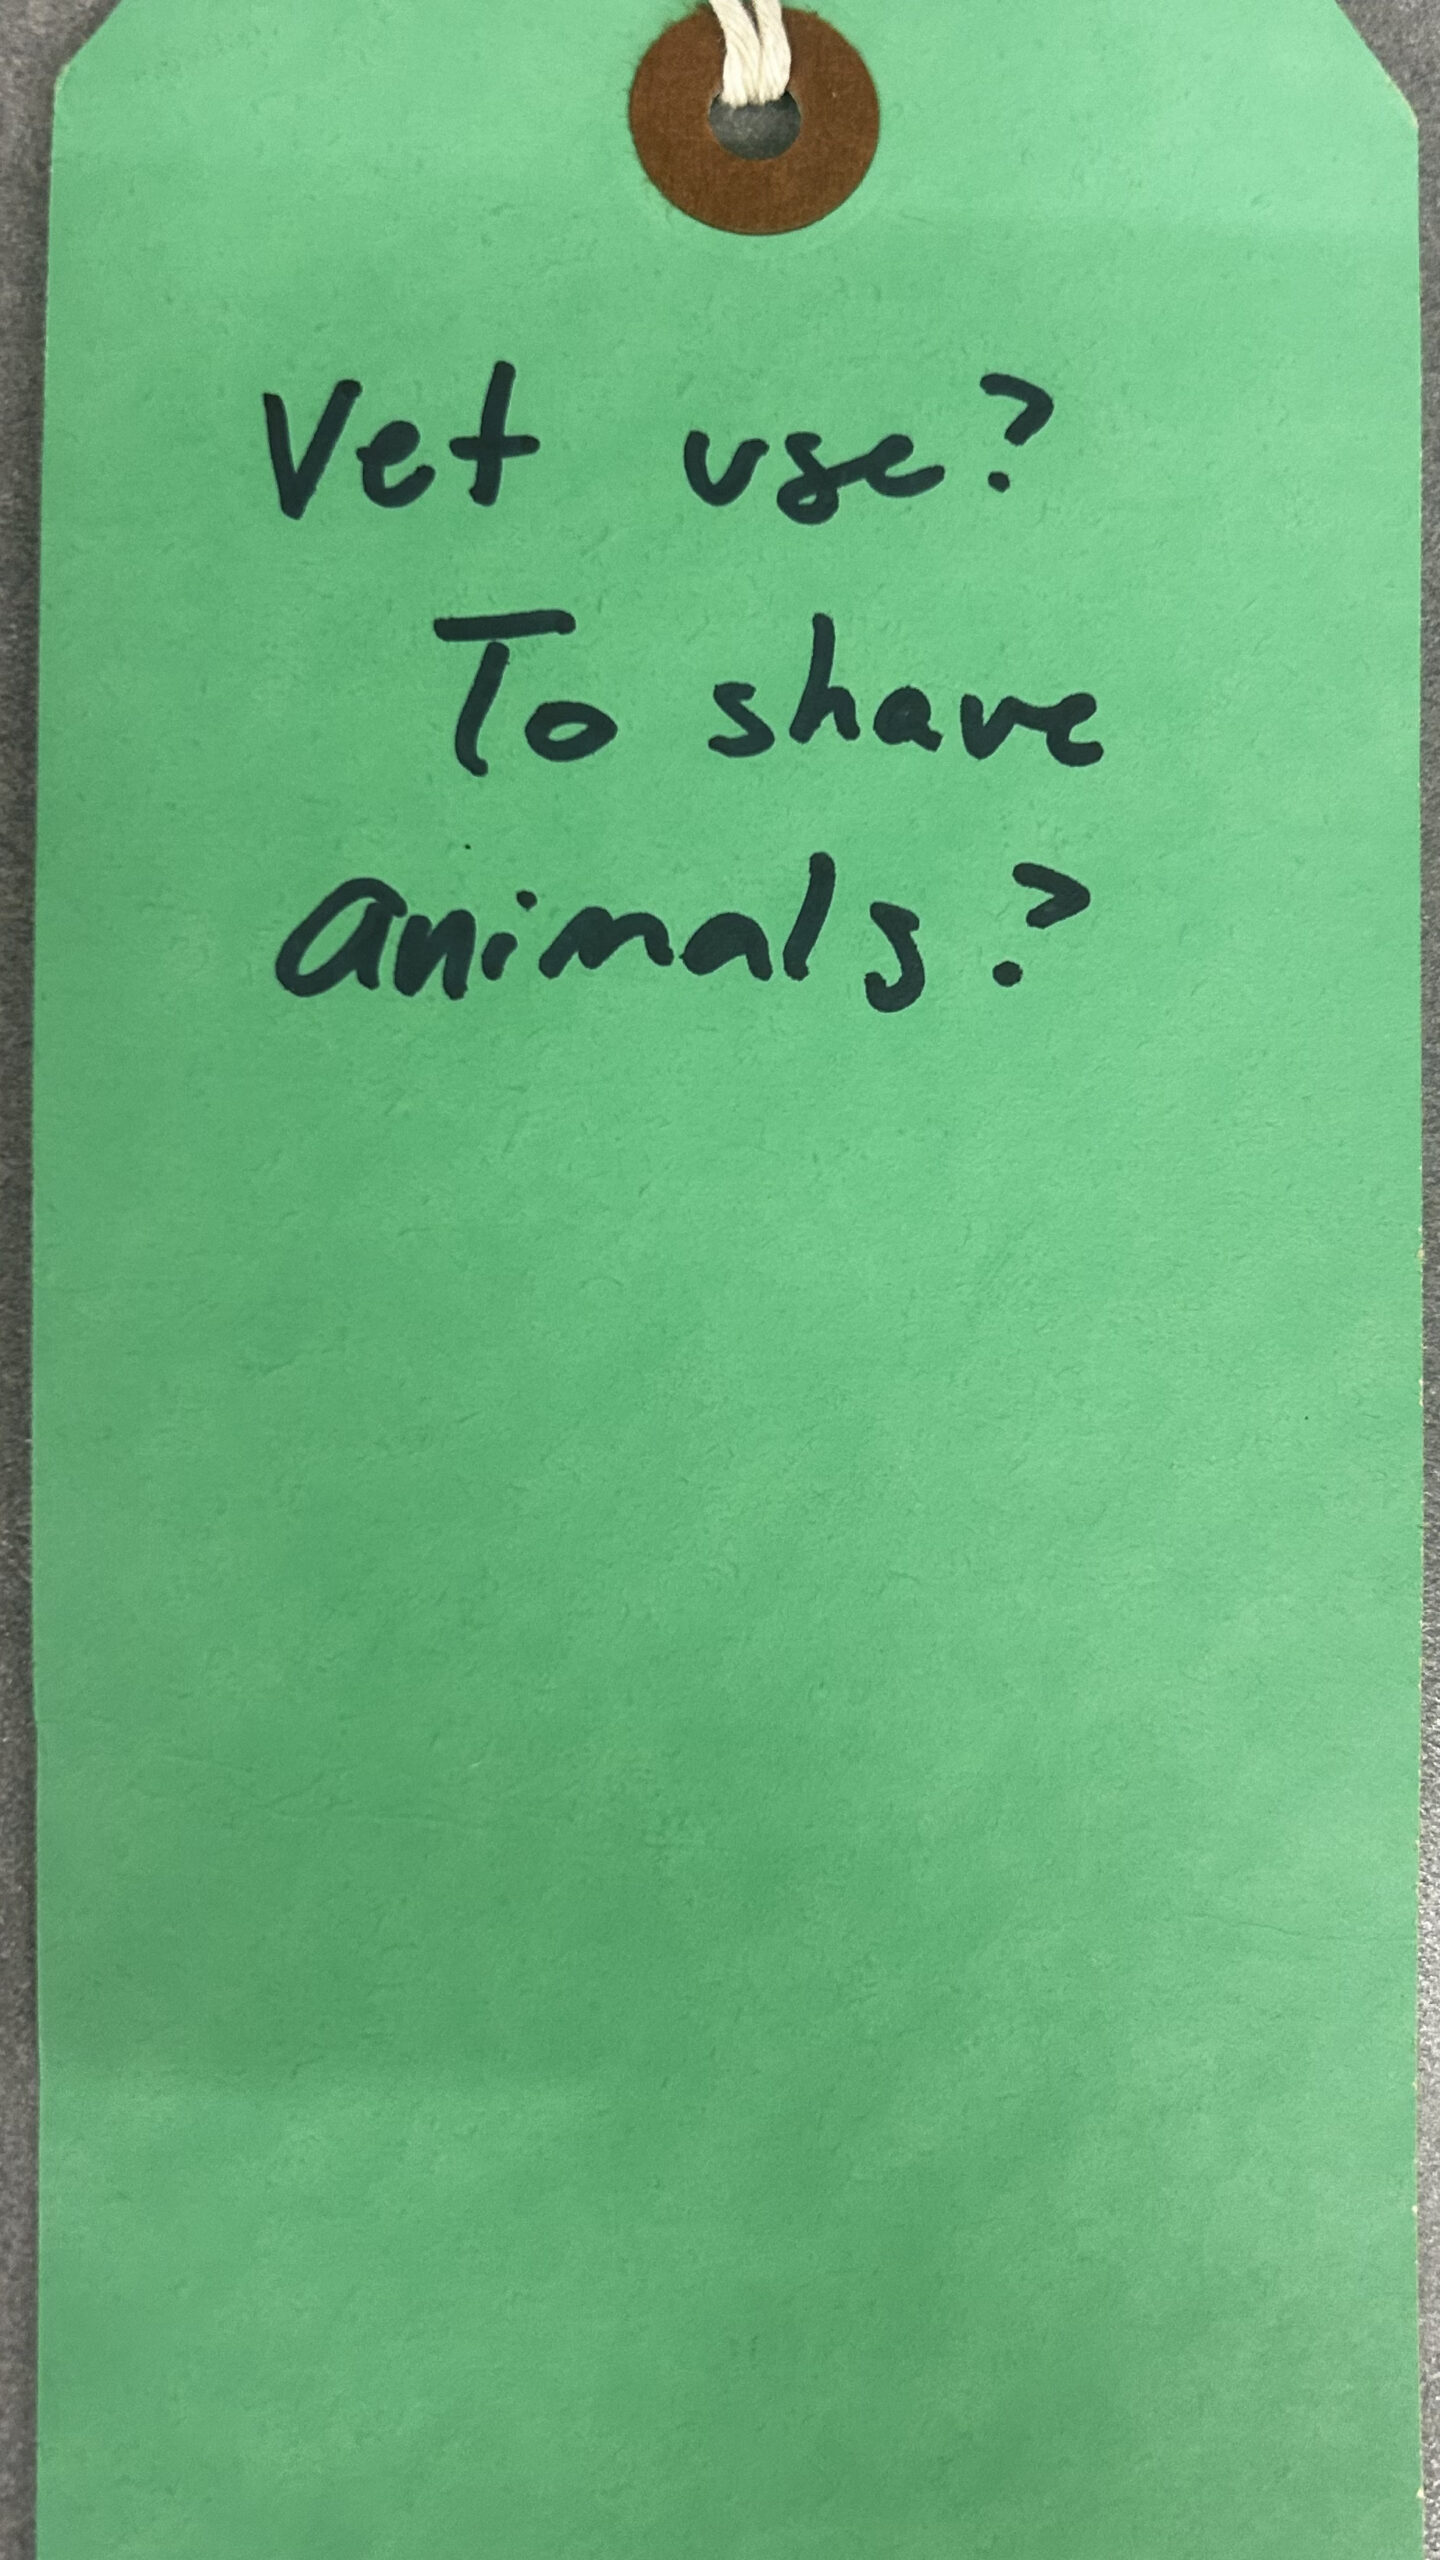 Vet use?
To shave
animals?